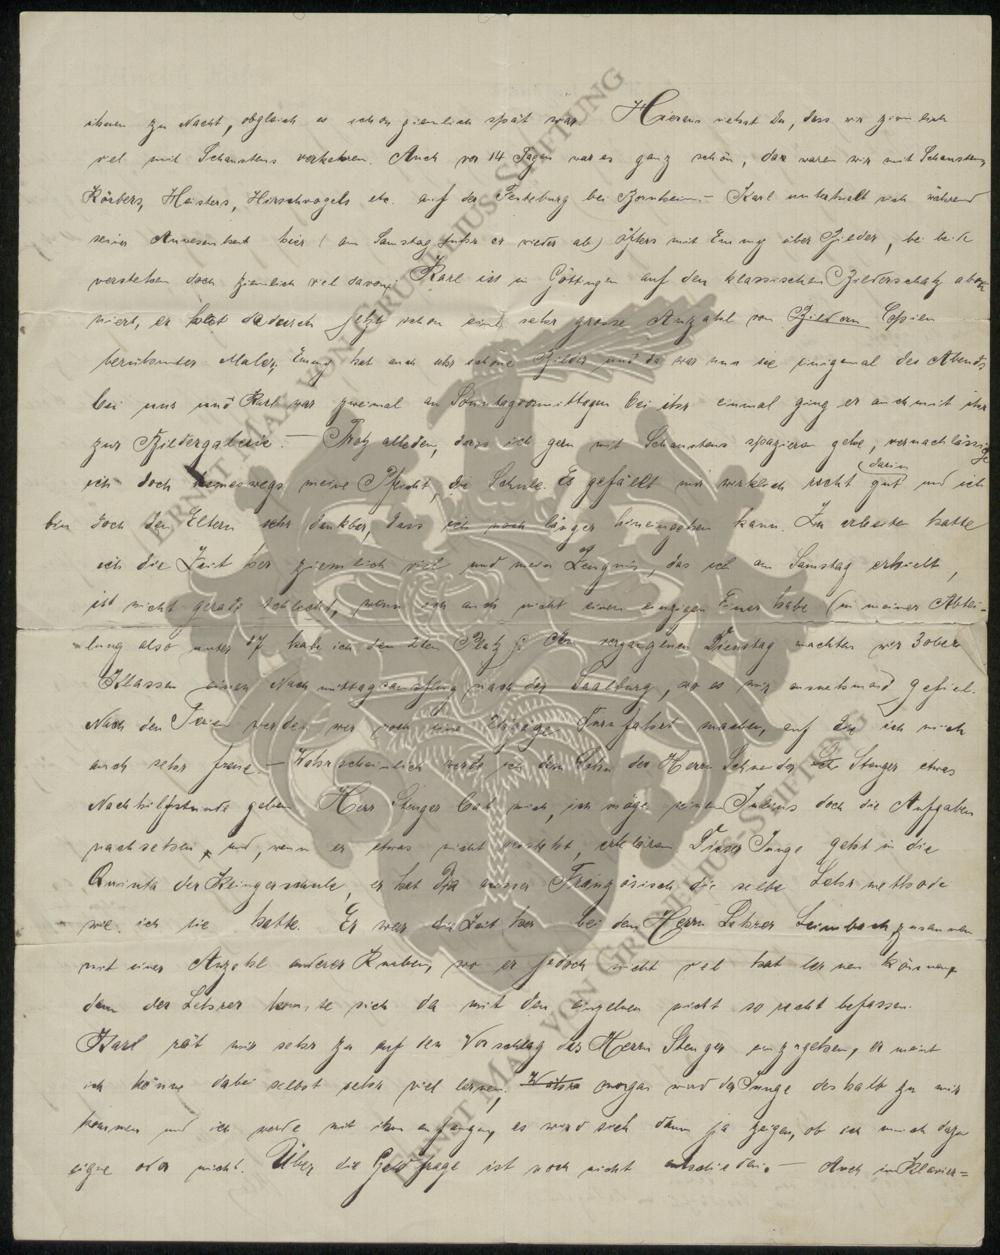 ihnen zu Nacht, obgleich es schon ziemlich spät war. Hieraus siehst Du, dass wir ziemlich
viel mit Schaustens verkehren. Auch vor 14 Tagen war es ganz schön, da waren wir mit Schaustens,
Körbers, Heisters, Hirschvogels etc. auf der Festeburg bei Bornheim. – Karl unterhielt sich während
seiner Anwesenheit hier (am Samstag fuhr er wieder ab) öfters mit Emmy über Bilder, beide
verstehen doch ziemlich viel davon. Karl ist in Göttingen auf den klassischen Bilderschatz abon
niert, er hat dadurch jetzt schon eine sehr grosse Anzahl von Bildern Copien
berühmter Maler, Emmy hat auch sehr schöne Bilder, und da war nun sie einigemal des Abends
bei uns und Karl war zweimal an Sonntagvormittagen bei ihr einmal ging er auch mit ihr
zur Bildergalerie. – Trotz alledem, dass ich gern mit Schaustens spazieren gehe, vernachlässige
ich doch keineswegs meine Pflicht, die Schule. Es gefällt mir wirklich recht gut darin und ich
bin doch den Eltern sehr dankbar, dass ich noch länger hineingehen kann. Zu arbeiten hatte
ich die Zeit her ziemlich viel und mein Zeugnis, das ich am Samstag erhielt,
ist nicht gerade schlecht, wenn ich auch nicht einen einzigen Einer habe (in meiner Abtei-
lung also unter 17 habe ich den 2ten Platz). Am vergangenen Dienstag machten wir 3 ober
Klassen einen Nachmittagsausflug nach der Saalburg, wo es mir ausnehmend gefiel.
Nach den Ferien werden wir noch eine Turnfahrt machen, auf die ich mich
auch sehr freue. – Wahrscheinlich werde ich dem Sohn des Herrn Schneider Stenger etwas
Nachhilfstunde geben. Herr Stenger bat mich, ich möge seinem Julius doch die Aufgaben
nachsehen, und, wenn er etwas nicht versteht, erklären. Dieser Junge geht in die
Quinta der Klingerschule, er hat ausser Französisch die selbe Lehrmethode
wie ich sie hatte. Er war die Zeit her bei dem Herrn Lehrer Leimbach zusammen
mit einer Anzahl anderer Knaben, wo er jedoch nicht viel hat lernen können,
denn der Lehrer konnte sich da mit den einzelnen nicht so recht befassen.
Karl rät mir sehr zu auf den Vorschlag des Herrn Stenger einzugehen, er meint
ich könne dabei selbst sehr viel lernen; morgen wird der Junge deshalb zu mir
kommen und ich werde mit ihm anfangen, es wird sich dann ja zeigen, ob ich mich dazu
eigne oder nicht. Über die Geldfrage ist noch nicht entschieden. – Auch im Klavier=
ERNST MAX VON GRUNELIUS-STIFTUNG
ERNST MAX VON GRUNELIUS-STIFTUNG